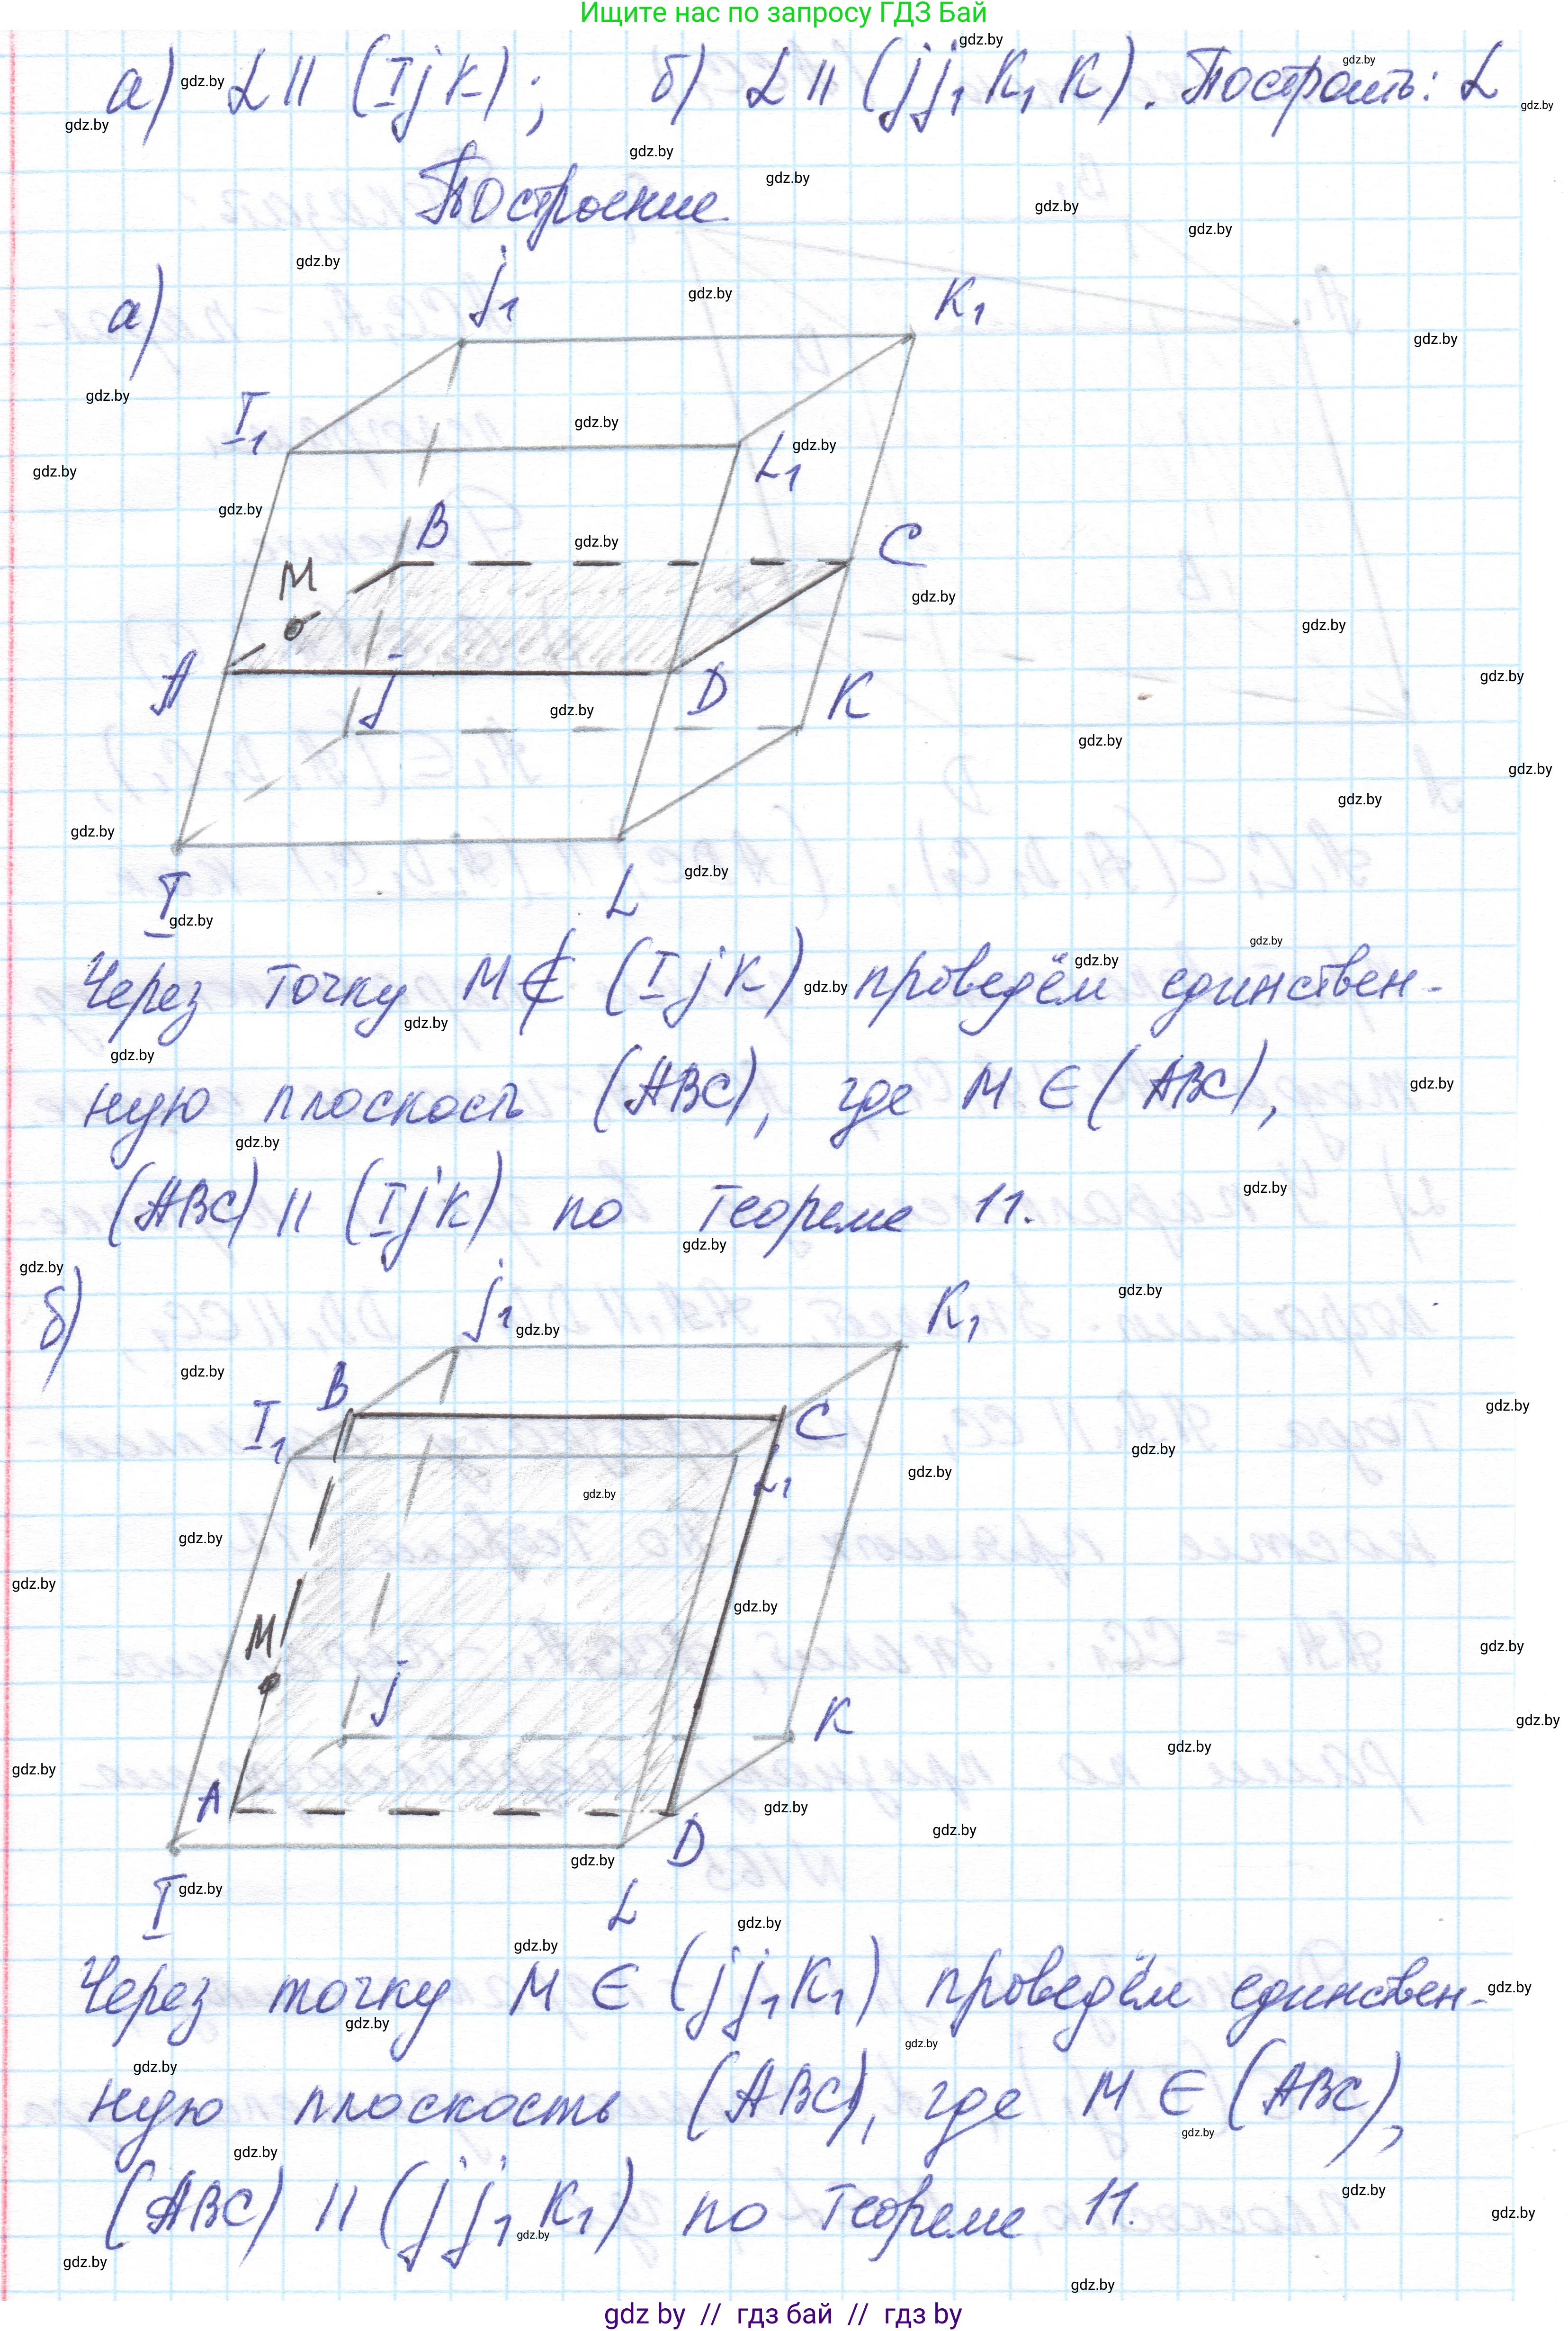 Ищите нас по запросу ГДЗ Бай
а) α || (IJK); б) α || (JJ₁K₁K). Построить: α
Построение
а)
J₁ K₁
I₁ L₁
B C
M
A D
J K
I L
Через точку M ∉ (IJK) проведём единствен-
ную плоскость (ABC), где M ∈ (ABC),
(ABC) || (IJK) по теореме 11.
б)
J₁ K₁
B C
I₁ L₁
M
J K
A D
I L
Через точку M ∈ (JJ₁K₁) проведём единствен-
ную плоскость (ABC), где M ∈ (ABC),
(ABC) || (JJ₁K₁) по теореме 11.
gdz by // гдз бай // гдз by